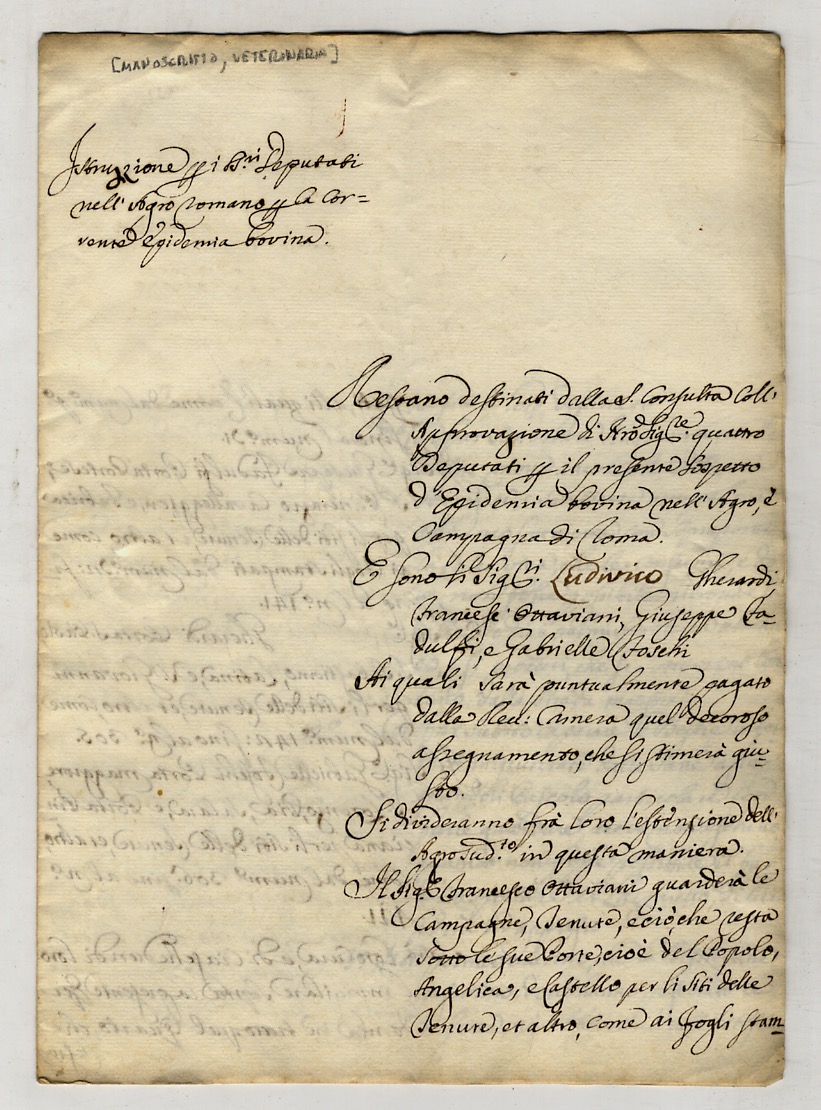 [MANOSCRITTO, VETERINARIA]
Istruzione p i SS.ri Deputati
nell' Agro Romano p la cor=
rente Epidemia bovina.
Restano destinati dalla S. Consulta coll'
Approvazione di quattro
Deputati p il presente sospetto
d'Epidemia bovina nell' Agro, e
Campagna di Roma.
E sono li Sig.ri Ludivico Gherardi
Francesc Ottaviani, Giuseppe Fa=
dulfi, e Gabrielle Foschi
Ai quali sarà puntualmente pagato
dalla Rev: Camera quel decoroso
assegnamento, che si stimerà giu=
sto.
Si divideranno frà loro l'estenzione dell'
Agro sud.to in questa maniera.
Il Sig.e Francesco Ottaviani guarderà le
Campagne, Tenute, e ciò che resta
sotto le sue Porte, cioè del Popolo,
Angelica, e Castello per li siti delle
Tenute, et altro, come ai fogli stam=